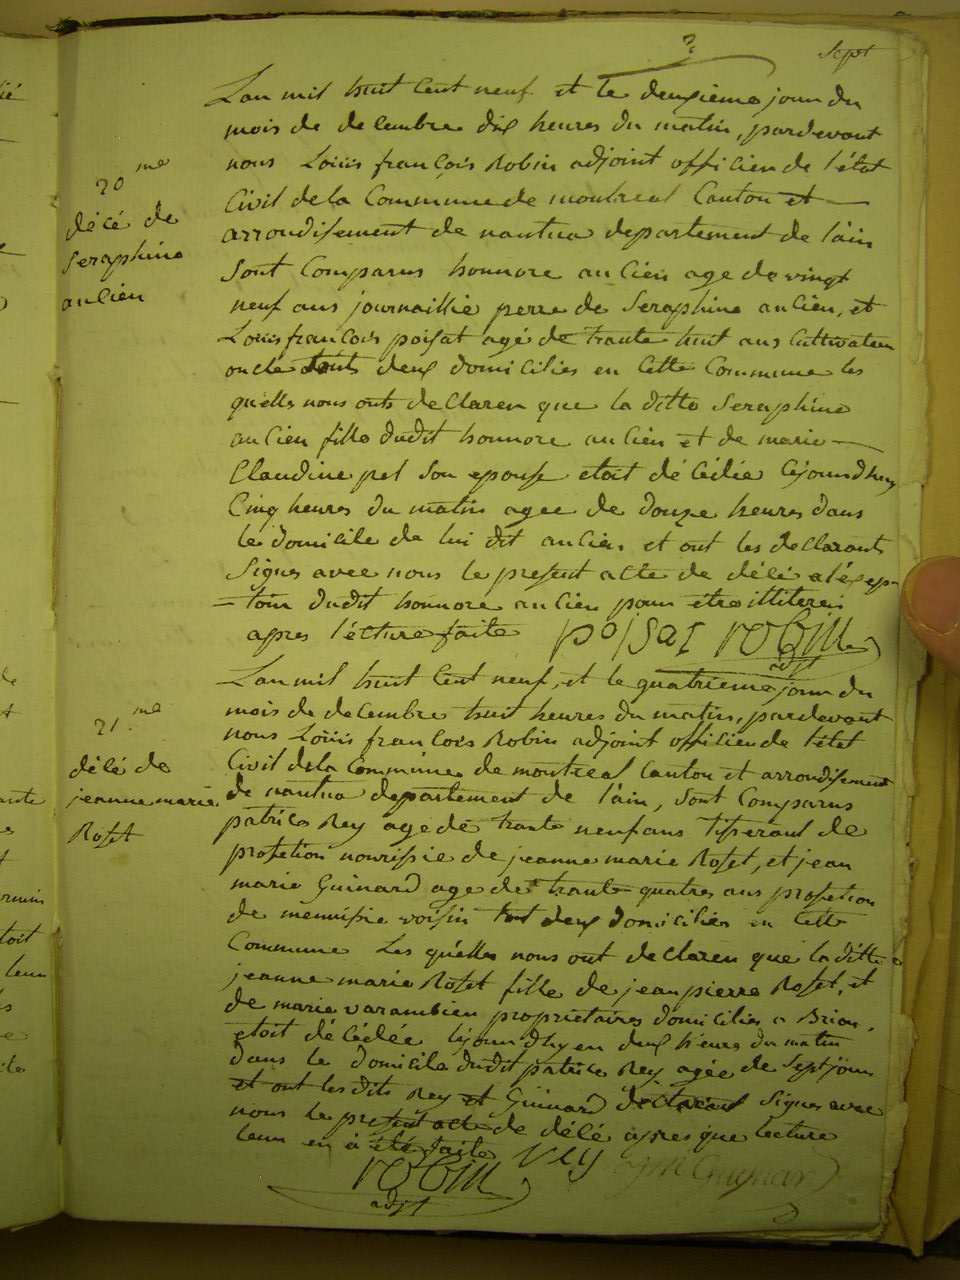 Sept
20me
décé de
Seraphine
ancien
Lan mil huit Cent neuf et le deuxieme jour du
mois de decembre dix heures du matin, pardevant
nous Loüis françois Robin adjoint officier de l'état
Civil de la Commune de montreal Canton et
arrondissement de nantua departement de l'ain
Sont Comparus honnore ancien age de vingt
neuf ans journaillié perre de Seraphine ancien, et
Loüis françois poisat agé de trante huit ans Cultivateur
oncle touts deux domiciliés en Cette Commune les
quelles nous onts declaren que la ditte Seraphine
ancien fille dudit honnore ancien et de marie
Claudine pet Son epouse etoit décédée Cejourdhuy
Cinq heures du matin agee de douze heures dans
le domicile de lui dit ancien et ont les declarants
Signes avec nous le present acte de décé a l'éxep-
tion dudit honnore ancien pour étre illiteré
apres l'écture faite poisat robin
adjt
21me
décé de
jeanne marie
Roset
Lan mil huit Cent neuf, et le quatrieme jour du
mois de decembre huit heures du matin, pardevant
nous Loüis françois Robin adjoint officier de l'état
Civil de la Commune de montreal Canton et arrondissement
de nantua departement de l'ain, Sont Comparus
patrice Rey age de trante neuf ans tisserant de
profetion nourissié de jeanne marie Roset, et jean
marie Guinard age de trante quatres ans profetion
de menuisié voisin tout deux domiciliés en Cette
Commune Les quélles nous ont declaren que la ditte
jeanne marie Roset fille de jean pierre Roset, et
de marie varambien proprietaires domiciliés a Brion,
etoit décédée Cejourdhy en deux heures du matin
dans le domicile dudit patrice Rey agée de Sept jours
et ont les dits Rey et Guinard declarant Signes avec
nous le present acte de décé apres que lecture
leur en à été faite rey jm Guinard
robin
adjt